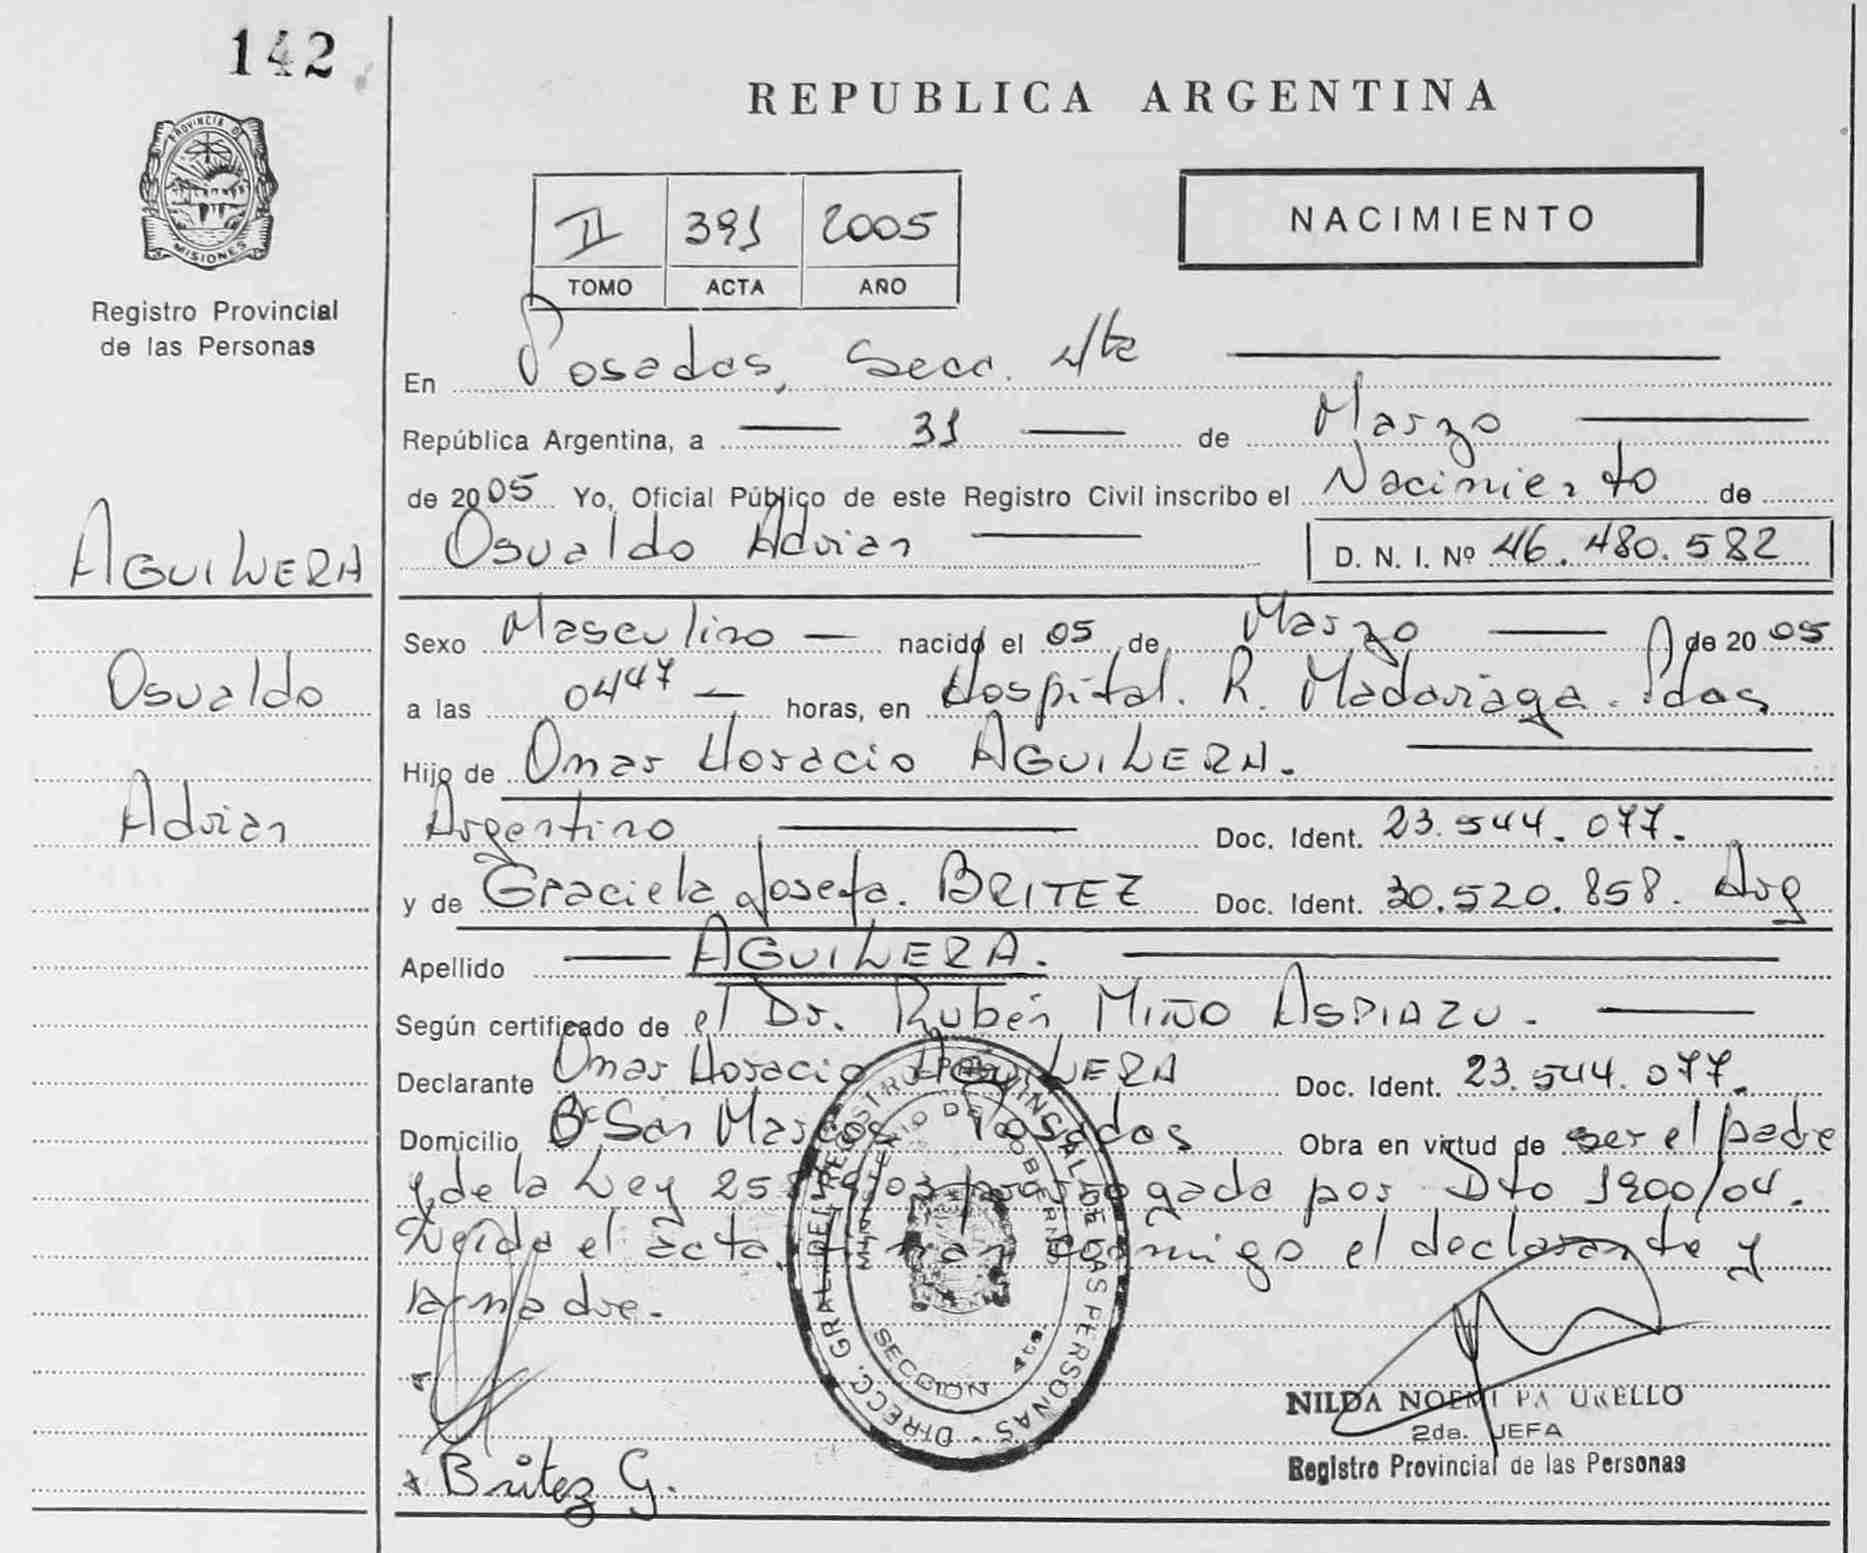 142
REPUBLICA ARGENTINA
PROVINCIA DE
MISIONES
Registro Provincial
de las Personas
II 391 2005
TOMO ACTA AÑO
NACIMIENTO
En Posadas, Secc. 4ta
República Argentina, a 31 de Marzo
de 2005 Yo, Oficial Público de este Registro Civil inscribo el Nacimiento de
Osvaldo Adrian D. N. I. Nº 46.480.582
AGUILERA
Osvaldo
Adrian
Sexo Masculino nacido el 05 de Marzo de 2005
a las 0447 horas, en Hospital. R. Madariaga. Pdas
Hijo de Omar Horacio AGUILERA.
Argentino Doc. Ident. 23.544.077.
y de Graciela Josefa. BRITEZ Doc. Ident. 30.520.858. Arg
Apellido AGUILERA.
Según certificado de el Dr. Rubén MIÑO ASPIAZU.
Declarante Omar Horacio AGUILERA Doc. Ident. 23.544.077.
Domicilio Bº San Marcos Posadas Obra en virtud de ser el padre
y de la Ley 25 /03 prorrogada por Dto 1900/04.
Leída el acta, firman conmigo el declarante y
la madre.
DIRECC. GRAL. DEL REGISTRO PROVINCIAL DE LAS PERSONAS
MINISTERIO DE GOBIERNO
SECCION 4ta.
Britez G.
NILDA NOEMI
2da. JEFA
Registro Provincial de las Personas